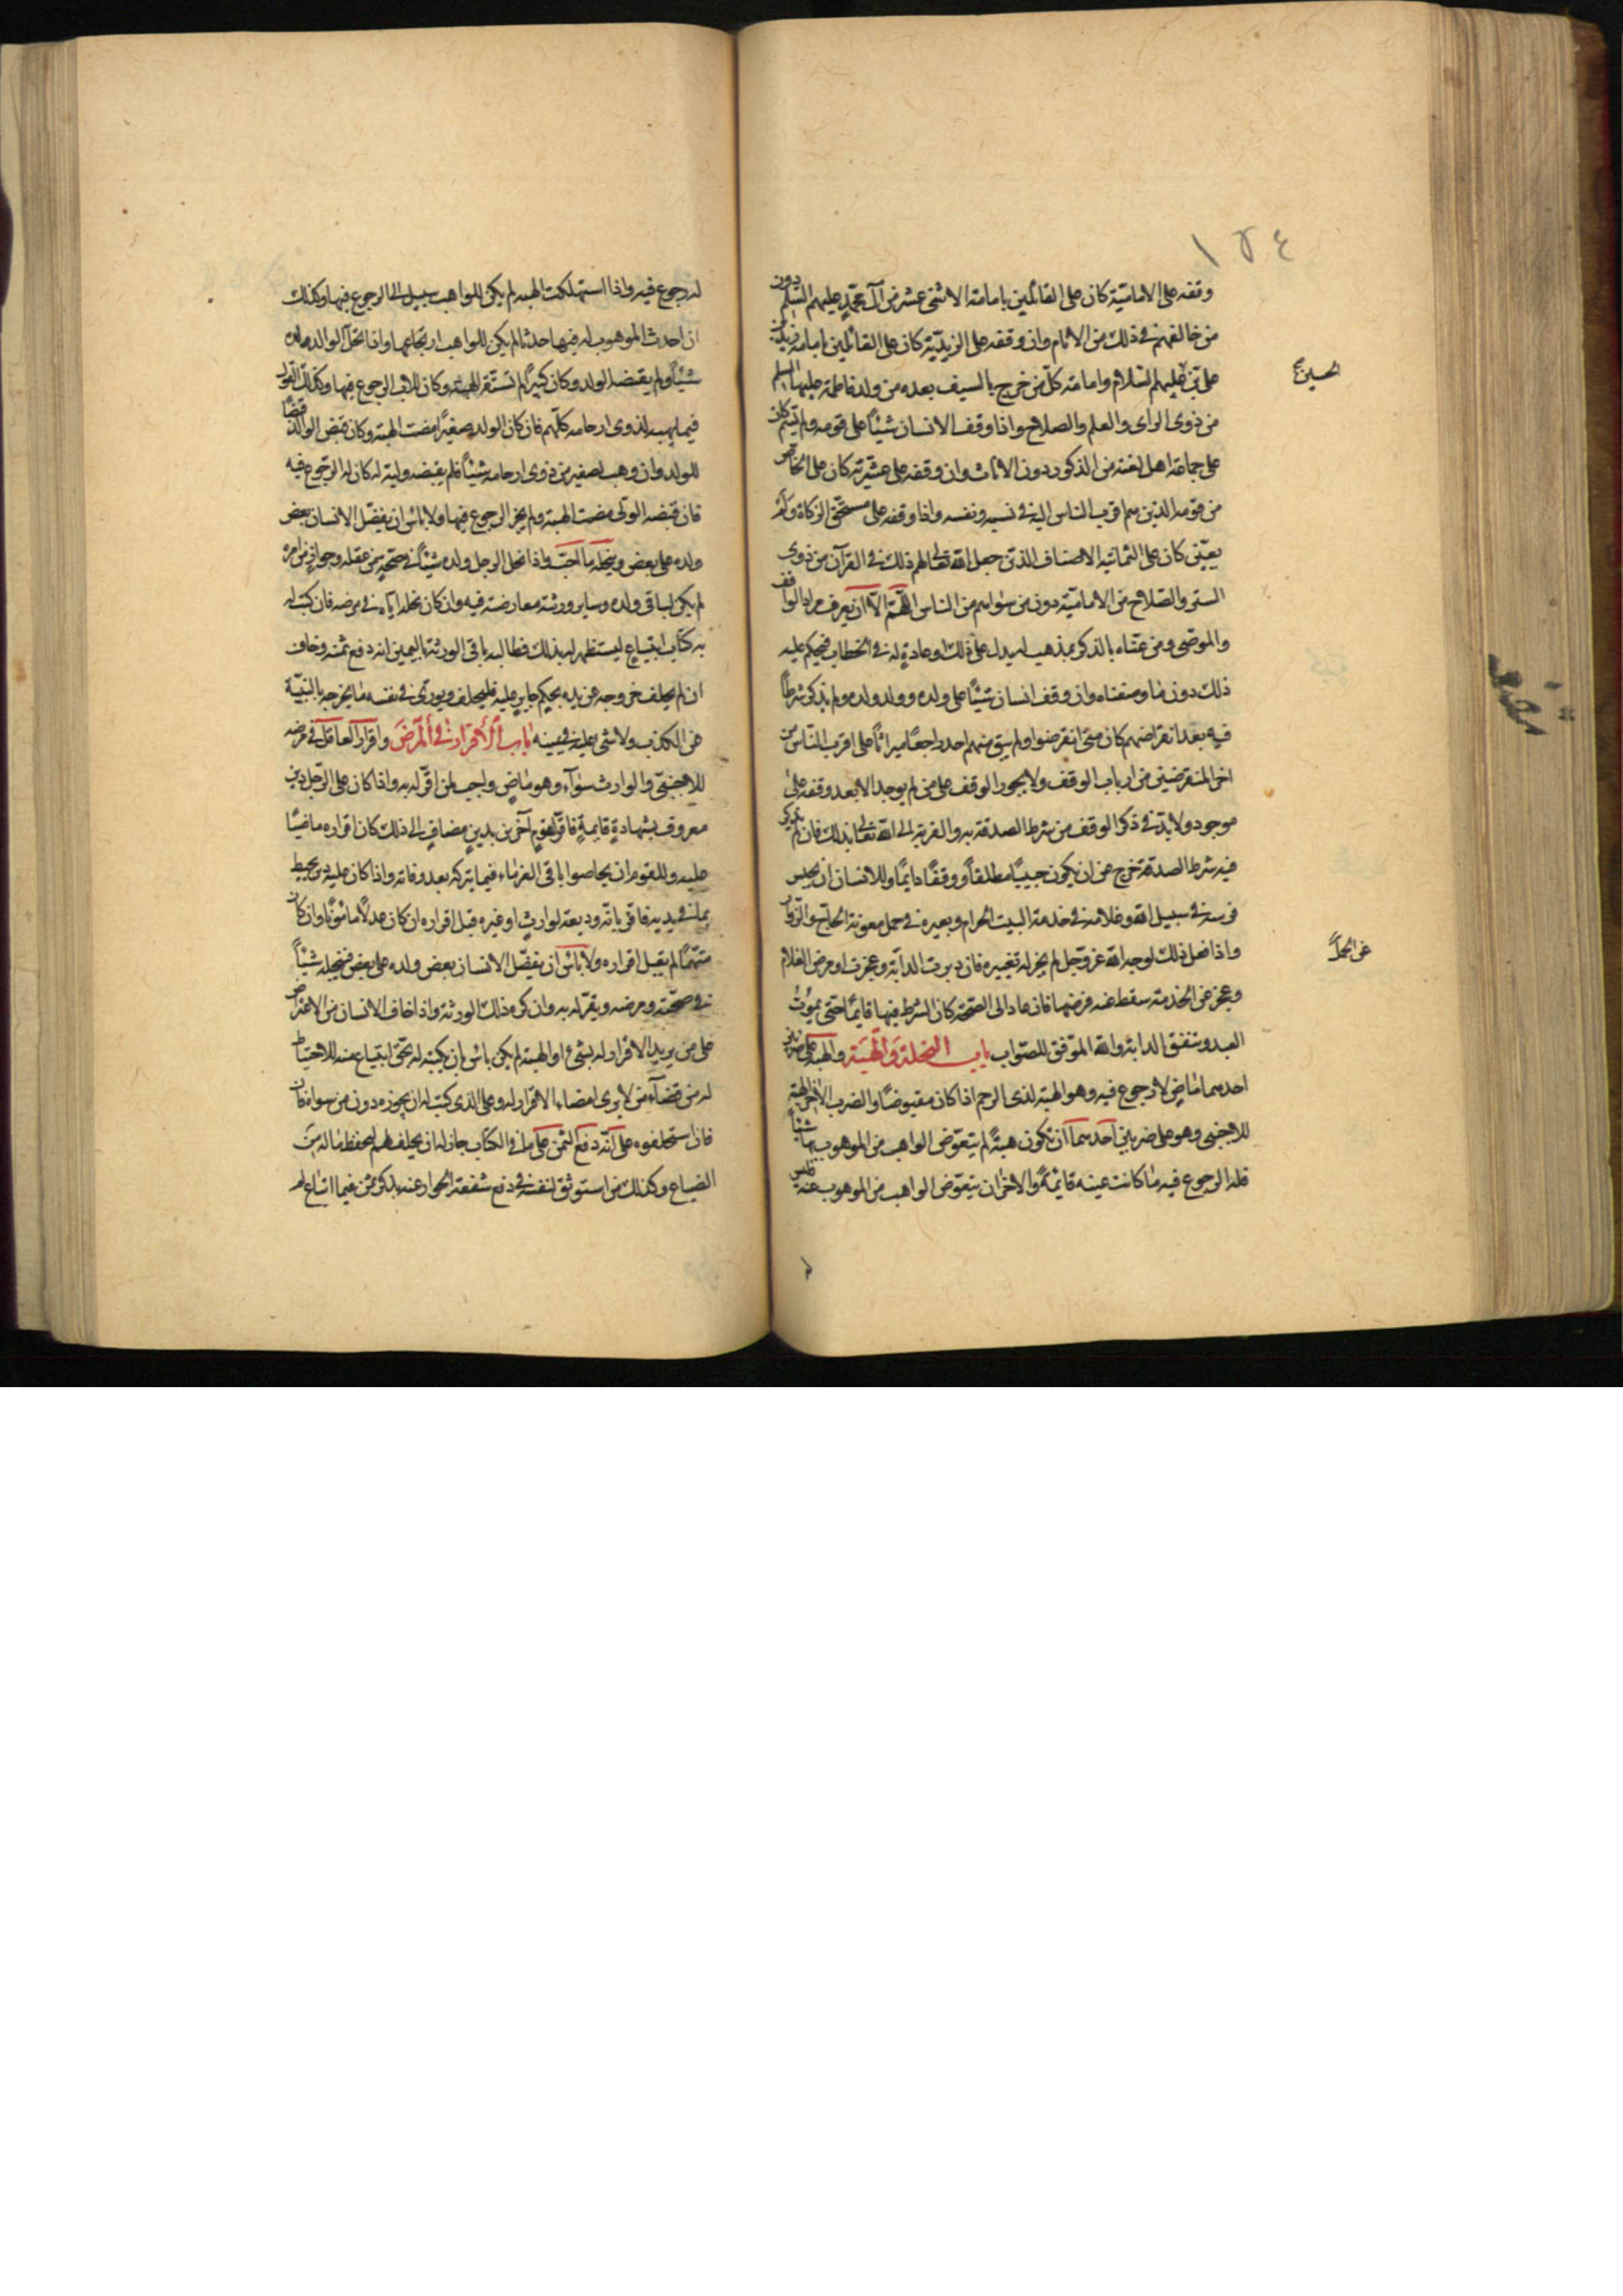 ١٥٤
وقفه على الامامية كان على القائلين بامامة الاثنى عشر من آل محمد عليهم السلم دون
من خالفهم في ذلك من الانام وان وقفه على الزيدية كان على القائلين بامامة زيد بن
على بن عليهم السلام وامامة كل من خرج بالسيف بعده من ولد فاطمة عليها السلم
الحسين ع
من ذوى الراى والعلم والصلاح واذا وقف الانسان شيئا على قومه ولم يسم كان
على جماعة اهل لغته من الذكور دون الاناث وان وقفه على عشيرته كان على الخاص
من قومه الذين هم اقرب الناس اليه في نسبه ونفسه واذا وقفه على مستحقي الزكاة ولم
يعين كان على الثمانية الاصناف الذين جعل الله تعالى لهم ذلك في القرآن من ذوى
الستر والصلاح من الامامية دون من سواهم من الناس اللهم الا ان يعرف مراد الواقف
والموصى ومن عناه بالذكر بمذهب له يدل على ذلك وعادة له في الخطاب فيحكم عليه
ذلك دون ما وصفناه وان وقف انسان شيئا على ولده وولد ولده ولم يذكر شرطا
فيه بعد انقراضهم كان متى انقرضوا ولم يبق منهم احد راجعا ميراثا على اقرب الناس من
اخر المنقرضين من ارباب الوقف ولا يجوز الوقف على من لم يوجد الا بعد وقفه على
موجود ولا بد في ذكر الوقف من شرط الصدقة به والقربة الى الله تعالى بذلك فان لم يذكر
فيه شرط الصدقة خرج عن ان يكون حبيسا مطلقا ووقفا دايما وللانسان ان يحبس
فرسه في سبيل الله وغلامه في خدمة البيت الحرام وبعيره في حمل معونة الحاج والزوار
واذا فعل ذلك لوجه الله عز وجل لم يجز له تغييره فان دبرت الدابة وعجزت او مرض الغلام
عن الحمل
وعجز عن الخدمة سقط عنه فرضها فان عاد الى الصحة كان الشرط فيها قايما حتى يموت
العبد وتنفق الدابة والله الموفق للصواب باب النحلة والهبة والهبة على ضربين
احدهما ماض لا رجوع فيه وهو الهبة لذى الرحم اذا كان مقبوضا والضرب الاخر الهبة
للاجنبى وهو على ضربين احدهما ان تكون هبة لم يتعوض الواهب من الموهوب بها شيئا
فله الرجوع فيه ما كانت عينه قائمة والاخر ان يتعوض الواهب من الموهوب عنه فليس
له رجوع فيه واذا استهلكت الهبة لم يكن للواهب سبيل الى الرجوع فيها وكذلك
ان احدث الموهوب له فيها حدثا لم يكن للواهب ارتجاعها واذا نحل الوالد ولده
شيئا ولم يقبضه الولد وكان كبيرا لم تستقر الهبة وكان للاب الرجوع فيها وكذلك القول
فيما يهبه لذوى ارحامه كلهم فان كان الولد صغيرا مضت الهبة وكان قبض الوالد قبضا
للولد وان وهب لصغير من ذوى ارحامه شيئا فلم يقبضه وليه له كان له الرجوع فيه
فان قبضه الولى مضت الهبة ولم يجز الرجوع فيها ولا باس ان يفضل الانسان بعض
ولده على بعض وينحله ما احب واذا نحل الرجل ولده شيئا في صحته من عقله وجواز من امره
لم يكن لباقى ولده وساير ورثته معارضته فيه وان كان نحله اياه في مرضه فان كتب له
به كتاب ابتياع ليستظهر له بذلك فطالبه باقى الورثة باليمين انه دفع ثمنه وخاف
ان لم يحلف خروجه عن يده بحكم جاير عليه فليحلف ويورى في نفسه ما يخرجه بالنية
عن الكذب ولا شى عليه في يمينه باب الاقرار في المرض واقرار العاقل في مرضه
للاجنبى والوارث سواء وهو ماض واجب لمن اقر له به واذا كان على الرجل دين
معروف بشهادة قايمة فاقر لقوم آخرين بدين مضاف الى ذلك كان اقراره ماضيا
عليه وللقوم ان يحاصوا باقى الغرماء فيما يتركه بعد وفاته واذا كان عليه دين يحيط
بما في يديه فاقر بانه وديعة لوارث او غيره قبل اقراره ان كان عدلا مامونا وان كان
متهما لم يقبل اقراره ولا باس ان يفضل الانسان بعض ولده على بعض فينحله شيئا
في صحته ومرضه ويقر له به وان كره ذلك الورثة واذا خاف الانسان من الاعتراض
على من يريد الاقرار له بشىء او الهبة لم يكن باس ان يكتبه له بحق ابتياع عنه للاحتياط
له من قضاء من لا يرى امضاء الاقرار له وعلى الذى كتب له ان يحوزه دون من سواه فان
فان استحلفوه على انه دفع الثمن على ما في الكتاب جاز له ان يحلف لهم ليحفظ ماله من
الضياع وكذلك من استوثق لنفسه في دفع شفعة الجوار عنه بذكر ثمن فيما ابتاع له